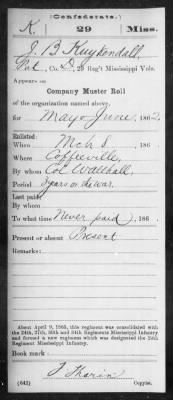 (Confederate.)
K. 29 Miss.
J. B. Kuykendall,
Pvt, Co. D, 29 Reg't Mississippi Vols.
Appears on
Company Muster Roll
of the organization named above,
for May & June, 1862.
Enlisted:
When Mch 8, 186 .
Where Coffeeville,
By whom Col Walthall,
Period 3 years or the war.
Last paid:
By whom
To what time Never paid, 186 .
Present or absent Present
Remarks:
About April 9, 1865, this regiment was consolidated with
the 24th, 27th, 30th and 34th Regiments Mississippi Infantry
and formed a new regiment which was designated the 24th
Regiment Mississippi Infantry.
Book mark:
(642) Copyist.